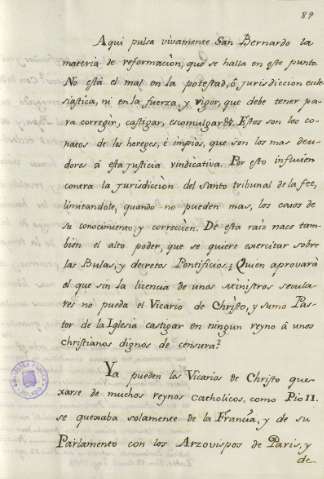 89
Aqui pulsa vivamente San Bernardo la
materia de reformaciòn, que se halla en este punto.
No està el mal en la potestad, ò jurisdiccion ecle
siastica, ni en la fuerza, y vigor, que debe tener pa
ra corregir, castigar, escomulgar &c. Estos son los co
natos de los hereges, è impios, que son los mas deu
dores à esta justicia vindicativa. Por esto influien
contra la jurisdicciòn del Santo tribunal de la fee,
limitandole, quando no pueden mas, los casos de
su conocimiento y correcciòn. De esta raìs nace tam
bièn el alto poder, que se quiere exercitar sobre
las Bulas, y decretos Pontificios. ¿Quièn aprovarà
el que sin la licencia de unos Ministros secula
res no pueda el Vicario de Christo, y sumo Pas
tor de la Iglesia castigar en ningun reyno à unos
christianos dignos de censura?
Ya pueden los Vicarios de Christo que
xarse de muchos reynos Catholicos, como Pio II.
se quexaba solamente de la Francia, y de su
Parlamento con los Arzovispos de Paris, y
de